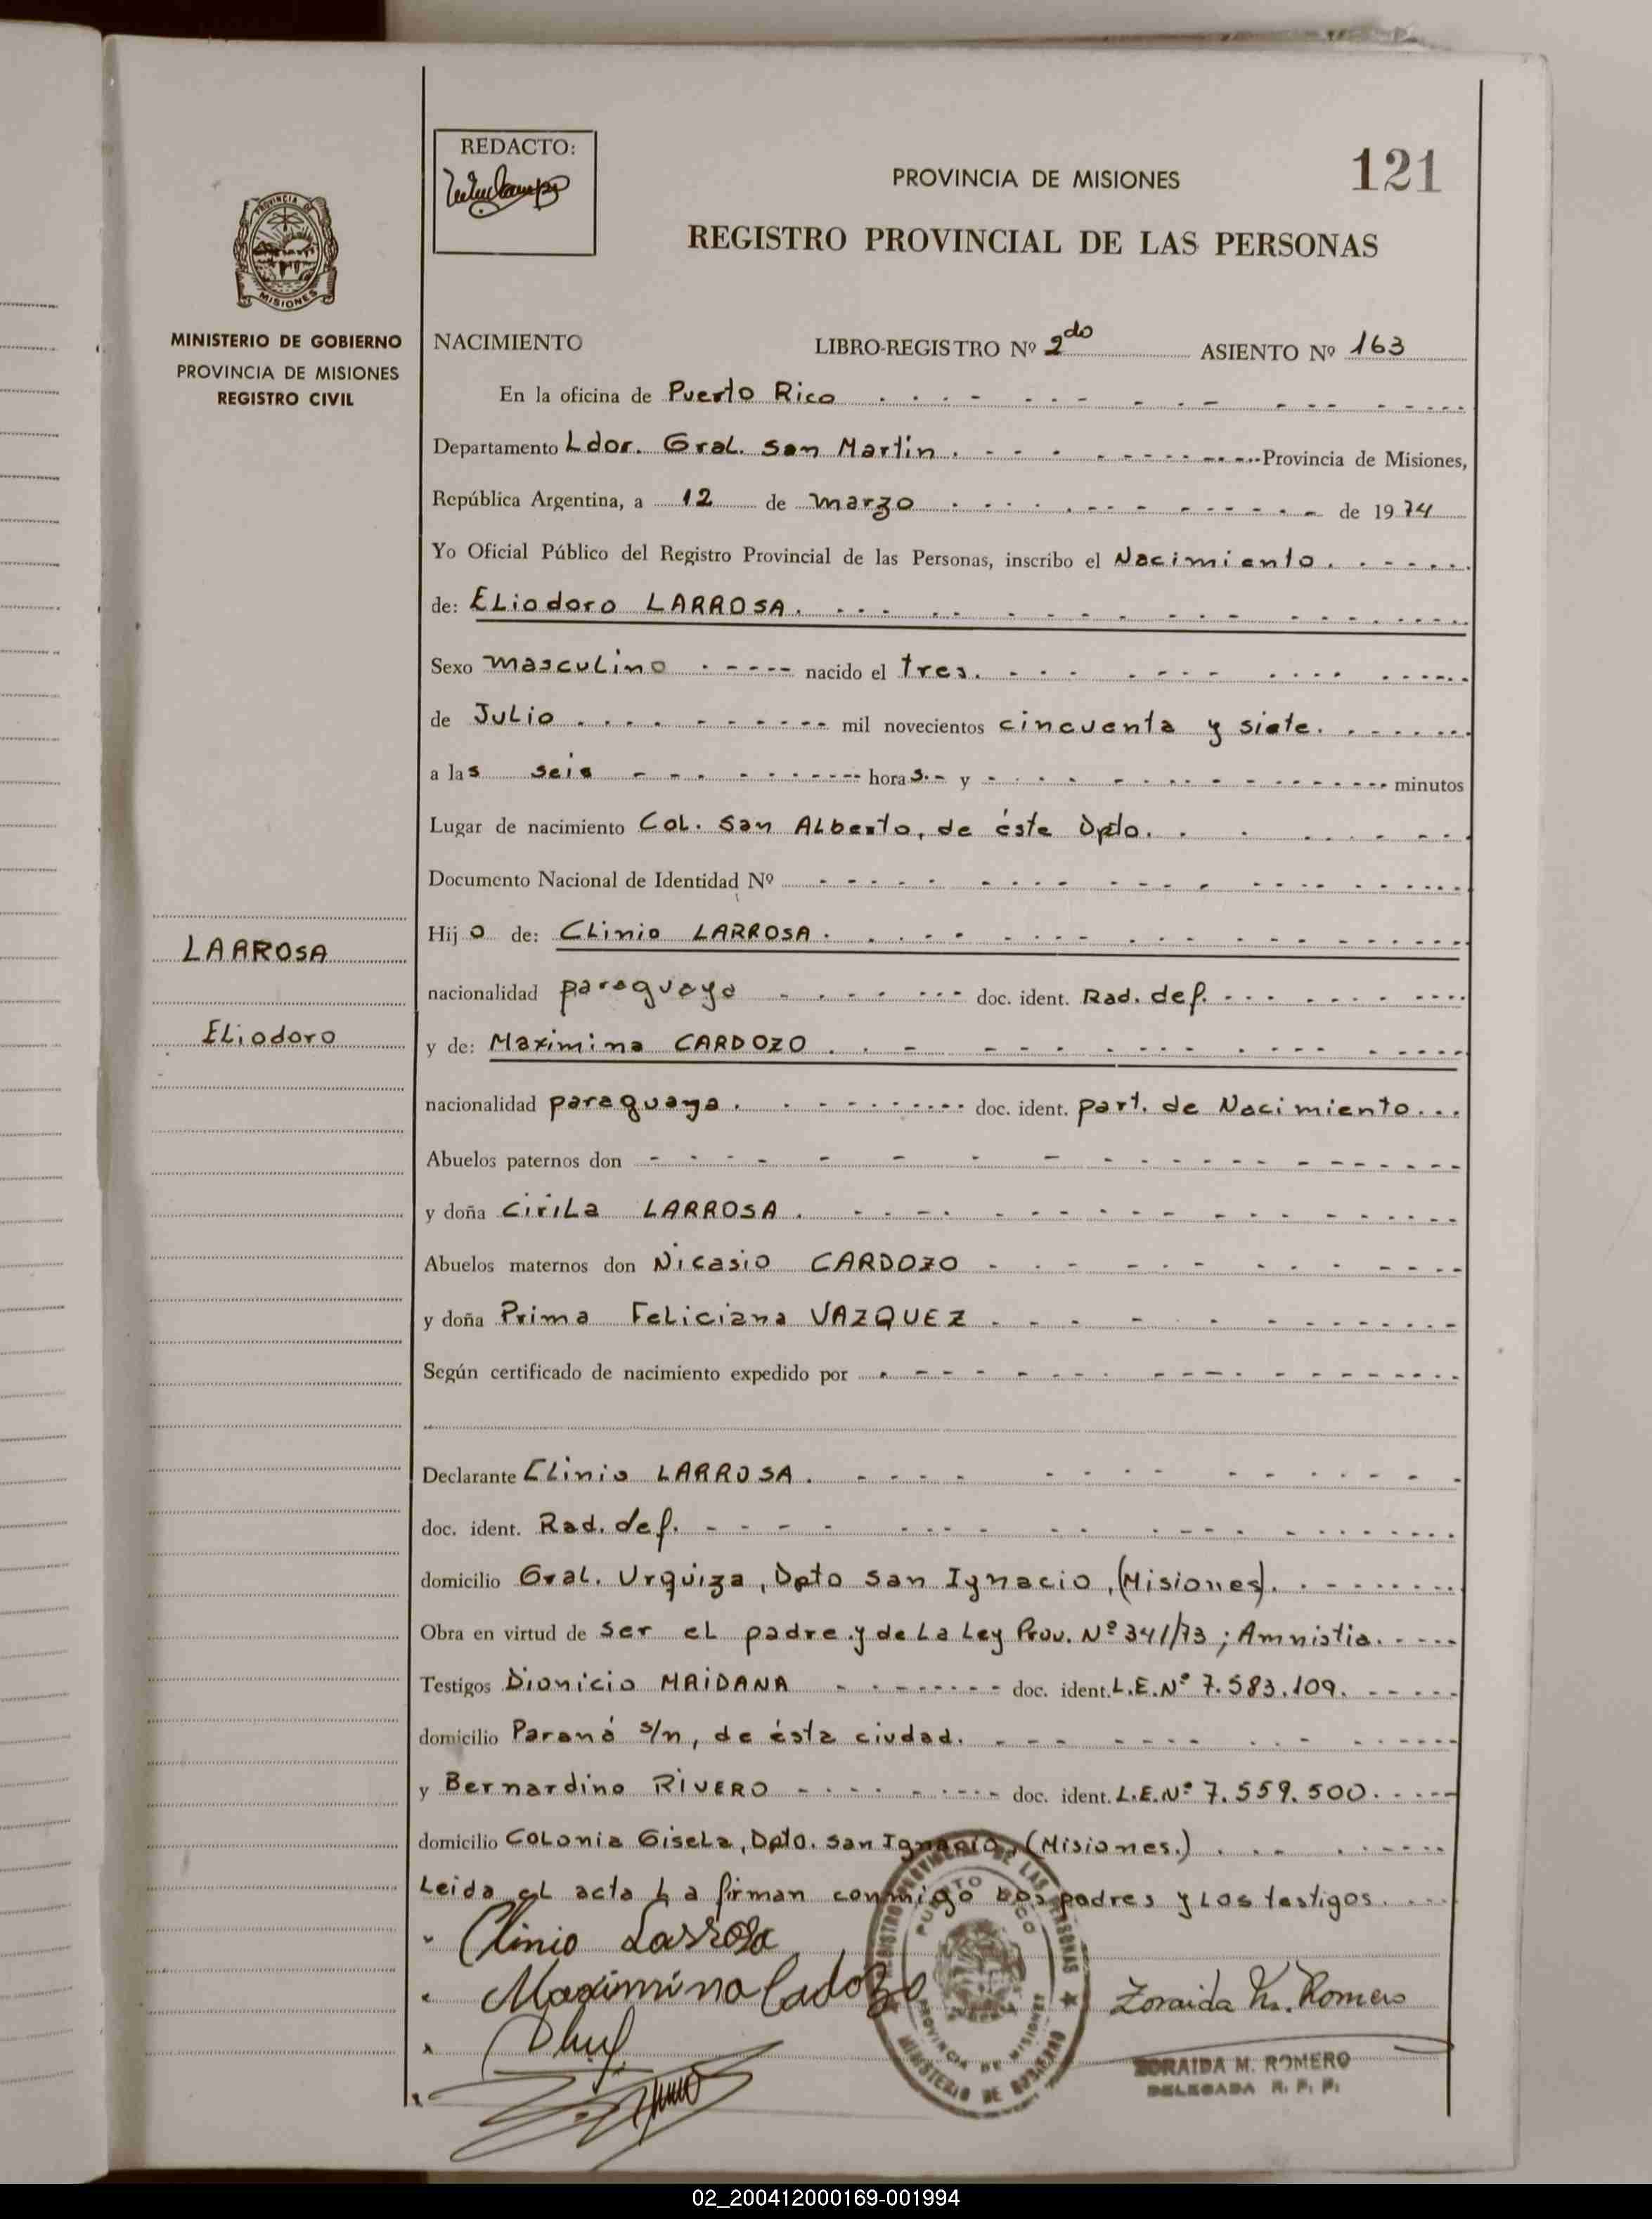 REDACTO:
PROVINCIA DE MISIONES
121
REGISTRO PROVINCIAL DE LAS PERSONAS
PROVINCIA DE
MISIONES
MINISTERIO DE GOBIERNO
PROVINCIA DE MISIONES
REGISTRO CIVIL
NACIMIENTO LIBRO-REGISTRO Nº 2do ASIENTO Nº 163
En la oficina de Puerto Rico
Departamento Ldor. Gral. San Martín. Provincia de Misiones,
República Argentina, a 12 de marzo de 1974
Yo Oficial Público del Registro Provincial de las Personas, inscribo el Nacimiento.
de: ELiodoro LARROSA.
Sexo masculino nacido el tres.
de Julio mil novecientos cincuenta y siete.
a las seis horas.- y minutos
Lugar de nacimiento Col. San Alberto, de éste Dpto.
Documento Nacional de Identidad Nº
Hijo de: Clinio LARROSA.
LARROSA
nacionalidad paraguaya doc. ident. Rad. def.
Eliodoro
y de: Maximina CARDOZO.
nacionalidad paraguaya. doc. ident. part. de Nacimiento...
Abuelos paternos don
y doña Cirila LARROSA.
Abuelos maternos don Nicasio CARDOZO
y doña Prima Feliciana VAZQUEZ
Según certificado de nacimiento expedido por
Declarante Clinio LARROSA.
doc. ident. Rad. def.
domicilio Gral. Urquiza, Dpto San Ignacio, (Misiones).
Obra en virtud de ser el padre y de La Ley Prov. Nº 341/73; Amnistia.
Testigos Dionicio MAIDANA doc. ident. L.E.Nº 7.583.109.
domicilio Paraná s/n, de ésta ciudad.
y Bernardino RIVERO doc. ident. L.E.Nº 7.559.500.
domicilio Colonia Gisela, Dpto. San Ignacio, (Misiones.)
Leida el acta la firman conmigo los padres y los testigos.
Clinio Larrosa
Maximina Cadozo
Zoraida M. Romero
REGISTRO PROVINCIAL DE LAS PERSONAS
PUERTO RICO
PROVINCIA DE MISIONES
MINISTERIO DE GOBIERNO
ZORAIDA M. ROMERO
DELEGADA R. P. P.
02_200412000169-001994